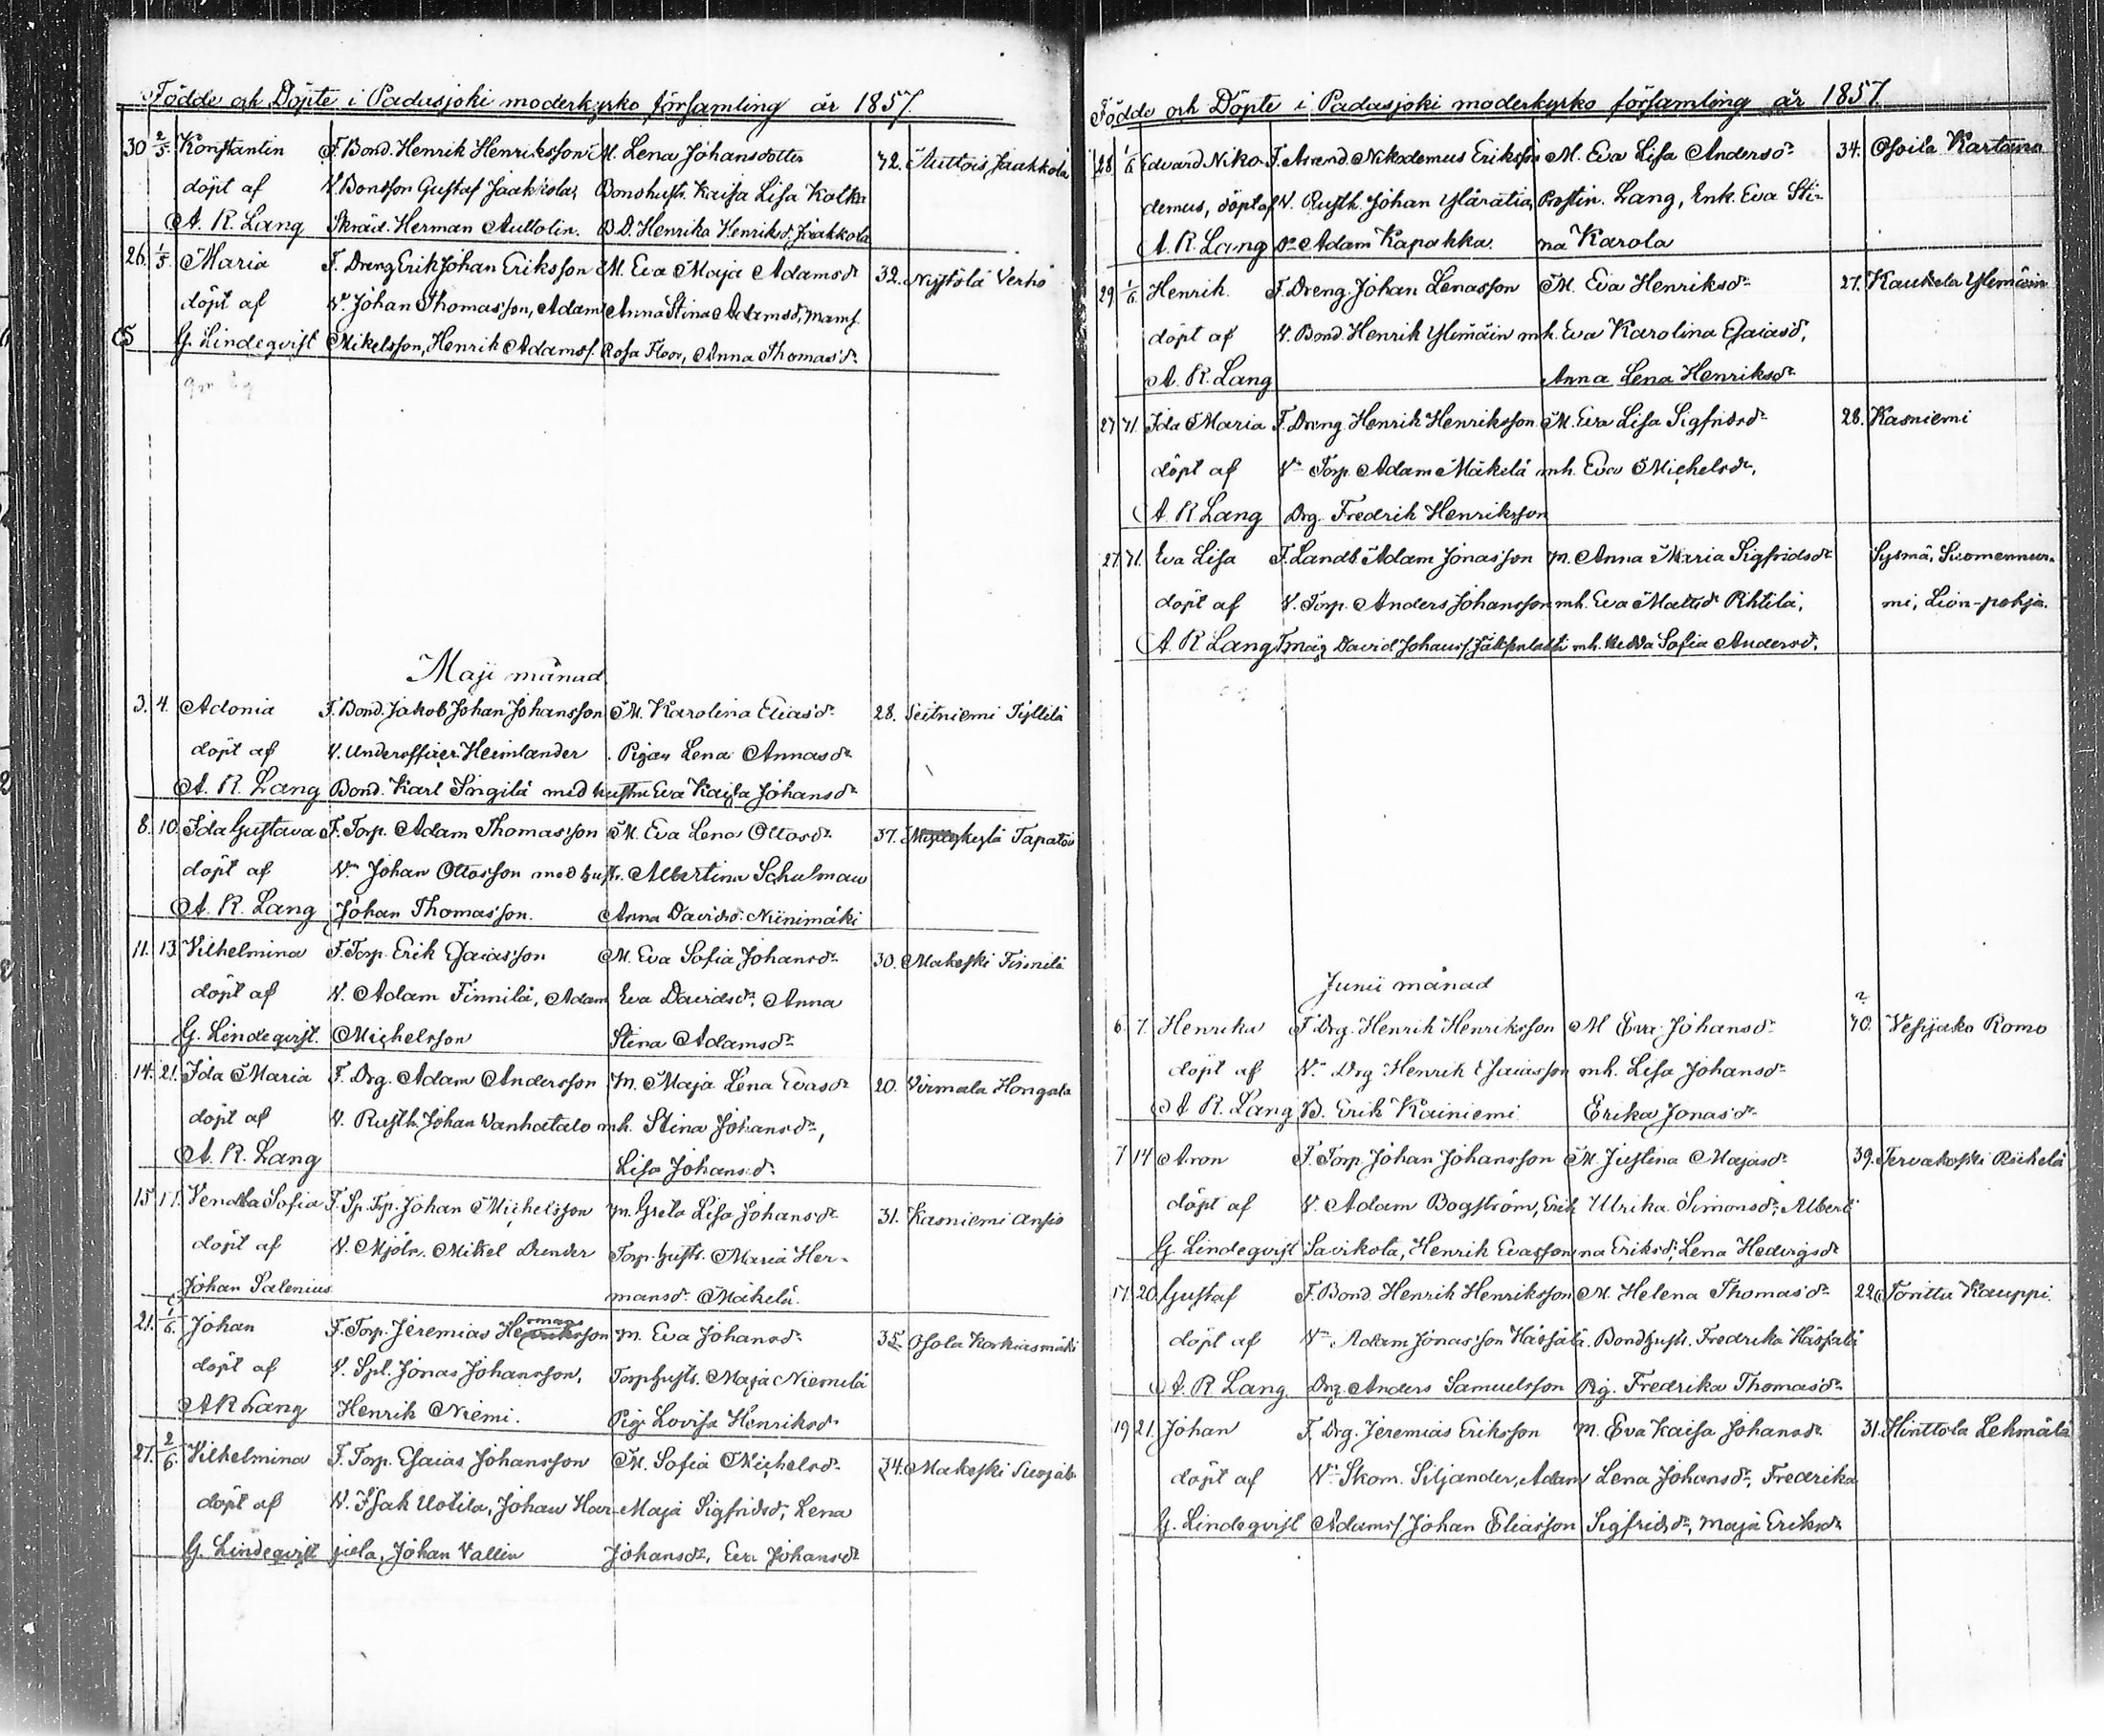 Födde och Döpte i Padasjoki moderkyrko församling år 1857.
30 2/5. Konstantin F. Bond. Henrik Henriksson M. Lena Johansdotter 42. Auttois Jaakkola
döpt af V. Bonsson Gustaf Jaakkola, Bondhust. Kaisa Lisa Kotka
A. R. Lang Skräd. Herman Auttolin. B. D. Henrika Henriksd. Jaakkola
26. 1/5. Maria F. Dreng Erik Johan Eriksson M. Eva Maja Adamsdr 32. Nyystölä Verho
döpt af Vn Johan Thomasson, Adam Anna Stina Adamsd, Mams.
G. Lindeqvist Mikelsson, Henrik Adamss. Rosa Floor, Anna Thomasdr
Maji månad
3. 4. Adonia F. Bond. Jakob Johan Johansson M. Karolina Eliasdr 28. Seitniemi Tyllilä
döpt af V. Underofficer Heimlander Pigan Lena Annasdr
A. R. Lang Bond. Karl Singilä med hustru Eva Kaisa Johansdr
8. 10. Ida Gustava F. Torp. Adam Thomasson M. Eva Lena Ottosdr 37. Tapatoi
döpt af Vn Johan Ottosson med hustr. Albertina Schulman
A. R. Lang Johan Thomasson. Anna Davidsd. Niinimäki
11. 13. Vilhelmina F. Torp. Erik Esaiasson M. Eva Sofia Johansdr 30. Maakeski Finnilä
döpt af V. Adam Finnilä, Adam Eva Davidsdr, Anna
G. Lindeqvist. Michelsson Stina Adamsdr
14. 21. Ida Maria F. Drg. Adam Andersson M. Maja Lena Evasdr 20. Virmala Hongala
döpt af V. Rusth. Johan Vanhatalo mh. Stina Johansdr,
A. R. Lang Lisa Johansd.
15 17. Vendla Sofia F. Sp. Trp. Johan Michelsson M. Greta Lisa Johansdr 31. Kasniemi Ansio
döpt af V. Mjöln. Mikel Drender Torp. hustr. Maria Her-
Johan Salenius mansdr Mäkelä.
21. 1/6. Johan F. Torp. Jeremias Hermansson M. Eva Johansdr 35 Osola Korkiasmäki
döpt af V. Spl. Jonas Johansson, Torphustr. Maja Niemilä
A R Lang Henrik Niemi. Pig. Lovisa Henriksdr
27. 2/6. Vilhelmina F. Torp. Esaias Johansson M. Sofia Michelsdr 34. Maakeski
döpt af V. Isak Uotila, Johan Har- Maja Sigfridsd, Lena
G. Lindeqvist jula, Johan Vallin Johansdr, Eva Johansdr
Födde och Döpte i Padasjoki moderkyrko församling år 1857.
28 1/6 Edvard Niko- F. Arrend. Nikodemus Eriksson M. Eva Lisa Andersdr 34. Osoila Kartano
demus, döpt af V. Rusth. Johan Ylärätia, Prostin. Lang, Enk. Eva Sti-
A. R. Lang Do Adam Kapakka. na Karola
29 1/6. Henrik. F. Dreng Johan Lenasson M. Eva Henriksdr 27. Kaukela Ylemäin
döpt af V. Bond. Henrik Ylimäin mh. Eva Karolina Esaiasd,
A. R. Lang Anna Lena Henriksdr
27 71. Ida Maria F. Dreng Henrik Henriksson M. Eva Lisa Sigfridsdr 28. Kasniemi
döpt af Vn Torp. Adam Mäkelä mh. Eva Michelsdr,
A. R Lang Drg. Fredrik Henriksson
27. 71. Eva Lisa F. Landb. Adam Jonasson M. Anna Maria Sigfridsdr Sysmä, Suomennu-
döpt af V. Torp. Anders Johansson mh. Eva Mattsdr Rihtilä, mi,
A. R Lang David Johanss. mh. Hedda Sofia Andersd.
Junii månad
6. 7. Henrika F. Drg. Henrik Henriksson M Eva Johansdr 40. Vesijako Romo
döpt af Vn Drg Henrik Esaiasson mh. Lisa Johansdr
A. R. Lang B. Erik Kainiemi Erika Jonasdr
7 14 Aron F. Torp. Johan Johansson M. Justina Majasdr 39. Tervakoski Riihelä
döpt af V. Adam Bogström, Erik Ulrika Simonsdr, Alberti-
G. Lindeqvist Savikola, Henrik Evasson na Eriksd, Lena Hedvigsdr
17. 20. Gustaf F. Bond Henrik Henriksson M. Helena Thomasdr 22. Torittu Kauppi
döpt af Vn Adam Jonasson Hässälä. Bondhustr. Fredrika Hässälä
A. R Lang Drg. Anders Samuelsson Pig. Fredrika Thomasdr
19 21. Johan F. Drg. Jeremias Eriksson M. Eva Kaisa Johansdr 31. Hinttola Lehmälä
döpt af Vn Skom. Siljander, Adam Lena Johansdr, Fredrika
G. Lindeqvist Adamss Johan Eliasson Sigfridsdr, Maja Eriksdr